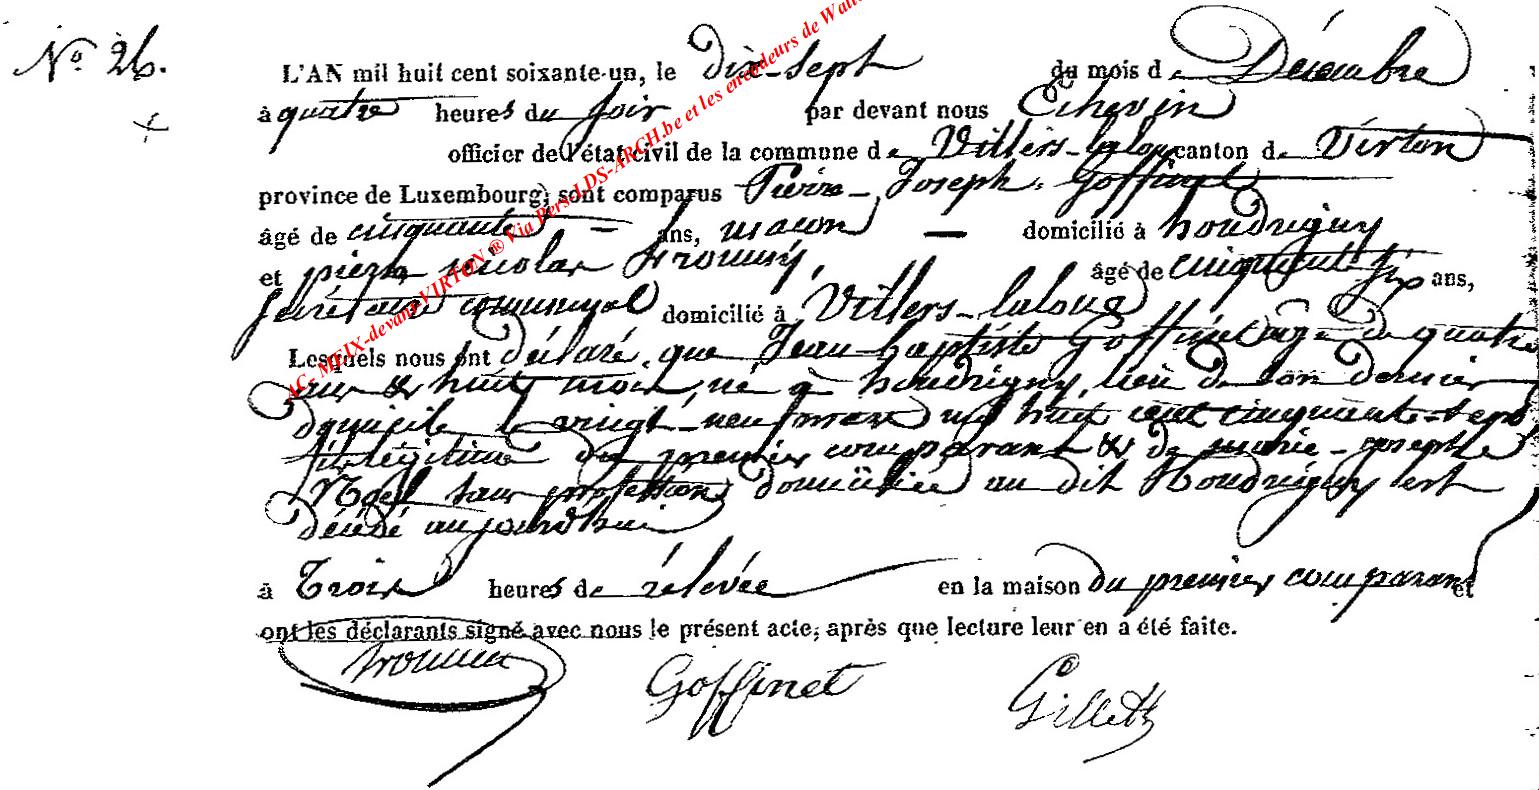 No. 26.
L'AN mil huit cent soixante-un, le dix-sept du mois de Décembre
à quatre heures du soir par devant nous Echevin
officier de l'état civil de la commune de Villers-laloue canton de Virton
province de Luxembourg, sont comparus Pierre-Joseph Goffinet
âgé de cinquante ans, maçon domicilié à houdrigny
et pierre nicolas âgé de cinquante six ans,
secrétaire communal domicilié à Villers-laloue
Lesquels nous ont déclaré que Jean-baptiste Goffinet âgé de quatre
ans & huit mois, né à houdrigny, lieu de son dernier
domicile le vingt-neuf mars mil huit cent cinquante-sept
fils légitime du premier comparant & de marie-josephe
Noël sans profession domiciliée au dit Houdrigny est
décédé aujourd'hui
à Trois heures de relevée en la maison du premier comparant et
ont les déclarants signé avec nous le présent acte, après que lecture leur en a été faite.
Goffinet
AC- MEIX-devant-VIRTON ® Via Perso LDS-ARCH.be et les encodeurs de